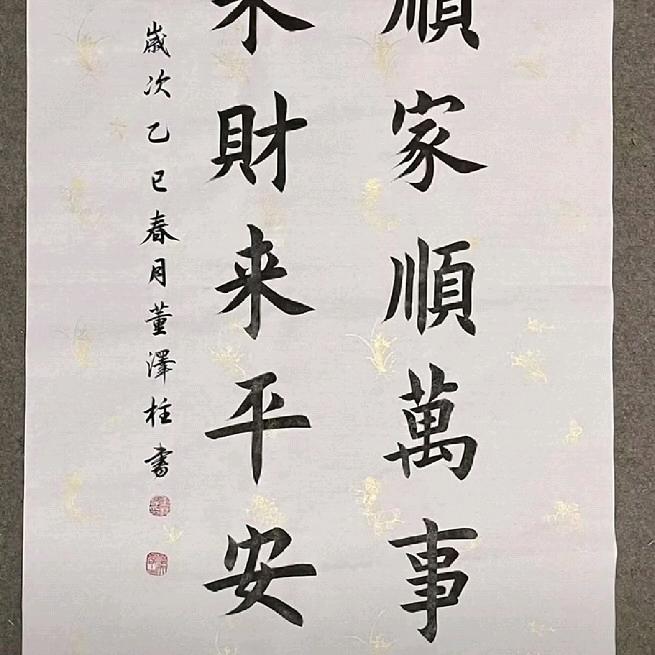 順家順萬事
来財来平安
歲次乙巳春月董澤柱書